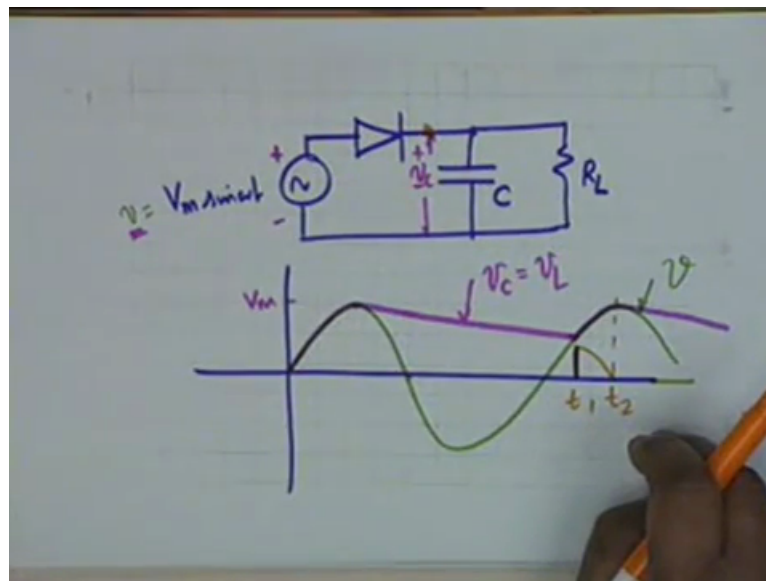 +
v = Vm sinωt
-
+
vc
C
RL
Vm
vc = vL
v
t1 t2